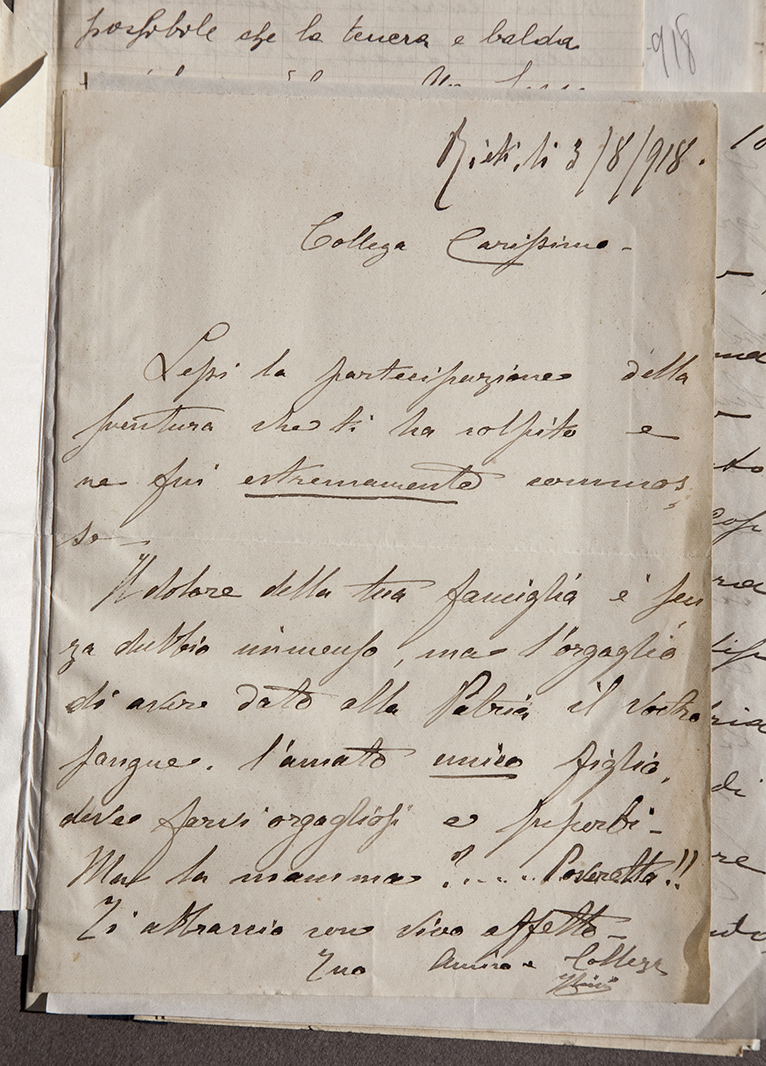 possibile che la tenera e balda
918
Rieti, li 3/8/918.
Collega Carissimo -
Lessi la partecipazione della
sventura che ti ha colpito e
ne fui estremamente commos
so -
Il dolore della tua famiglia è sen
za dubbio immenso, ma l'orgoglio
di avere dato alla Patria il vostro
sangue. l'amato unico figlio,
deve farvi orgogliosi e superbi -
Ma la mamma ?..... Poveretta!!
Ti abbraccio con vivo affetto -
Tuo Amico e Collega
di
re